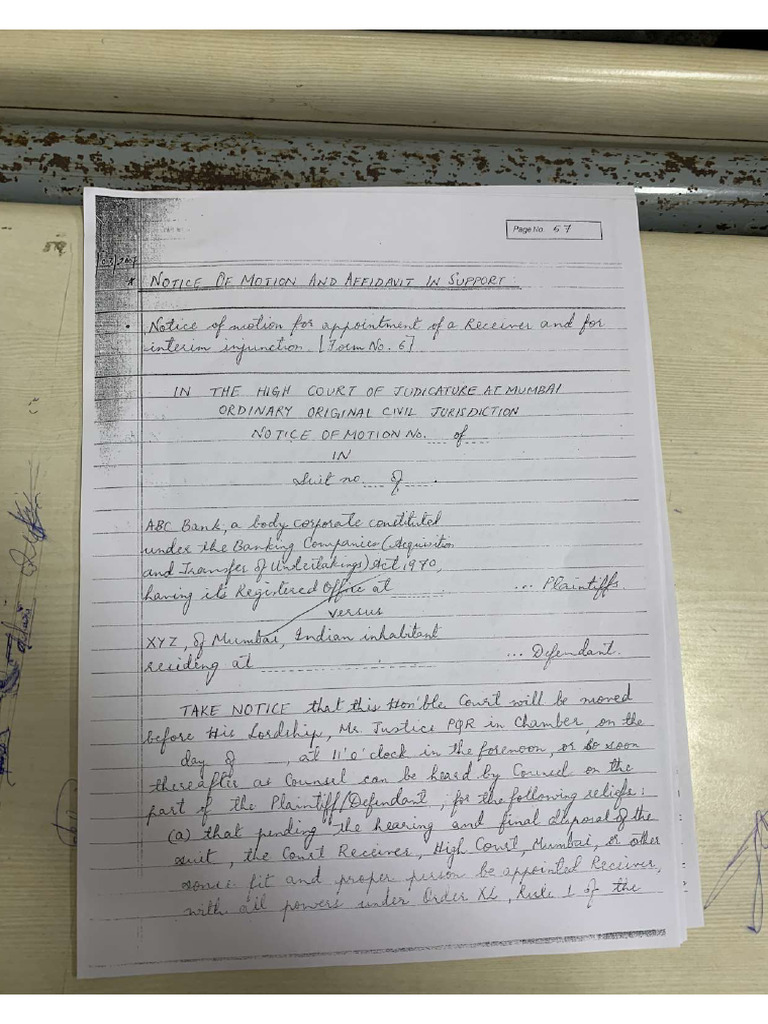 Page No. 67
NOTICE OF MOTION AND AFFIDAVIT IN SUPPORT :
• Notice of motion for appointment of a Receiver and for
interim injunction [Form No. 6]
IN THE HIGH COURT OF JUDICATURE AT MUMBAI
ORDINARY ORIGINAL CIVIL JURISDICTION
NOTICE OF MOTION NO. ___ of ___
IN
Suit no. ___ of ___.
ABC Bank, a body corporate constituted
under the Banking Companies (Acquisition
and Transfer of Undertakings) Act, 1970,
having its Registered Office at ______. ... Plaintiffs
versus
XYZ, of Mumbai, Indian inhabitant
residing at ____________. ... Defendant.
TAKE NOTICE that this Hon'ble Court will be moved
before His Lordship, Mr. Justice PQR in Chamber, on the
day of ___, at 11'0'clock in the forenoon, or so soon
thereafter as Counsel can be heard by Counsel on the
part of the Plaintiff/Defendant, for the following reliefs :
(a) that pending the hearing and final disposal of the
suit, the Court Receiver, High Court, Mumbai, or other
some fit and proper person be appointed Receiver,
with all powers under Order XL, Rule 1 of the